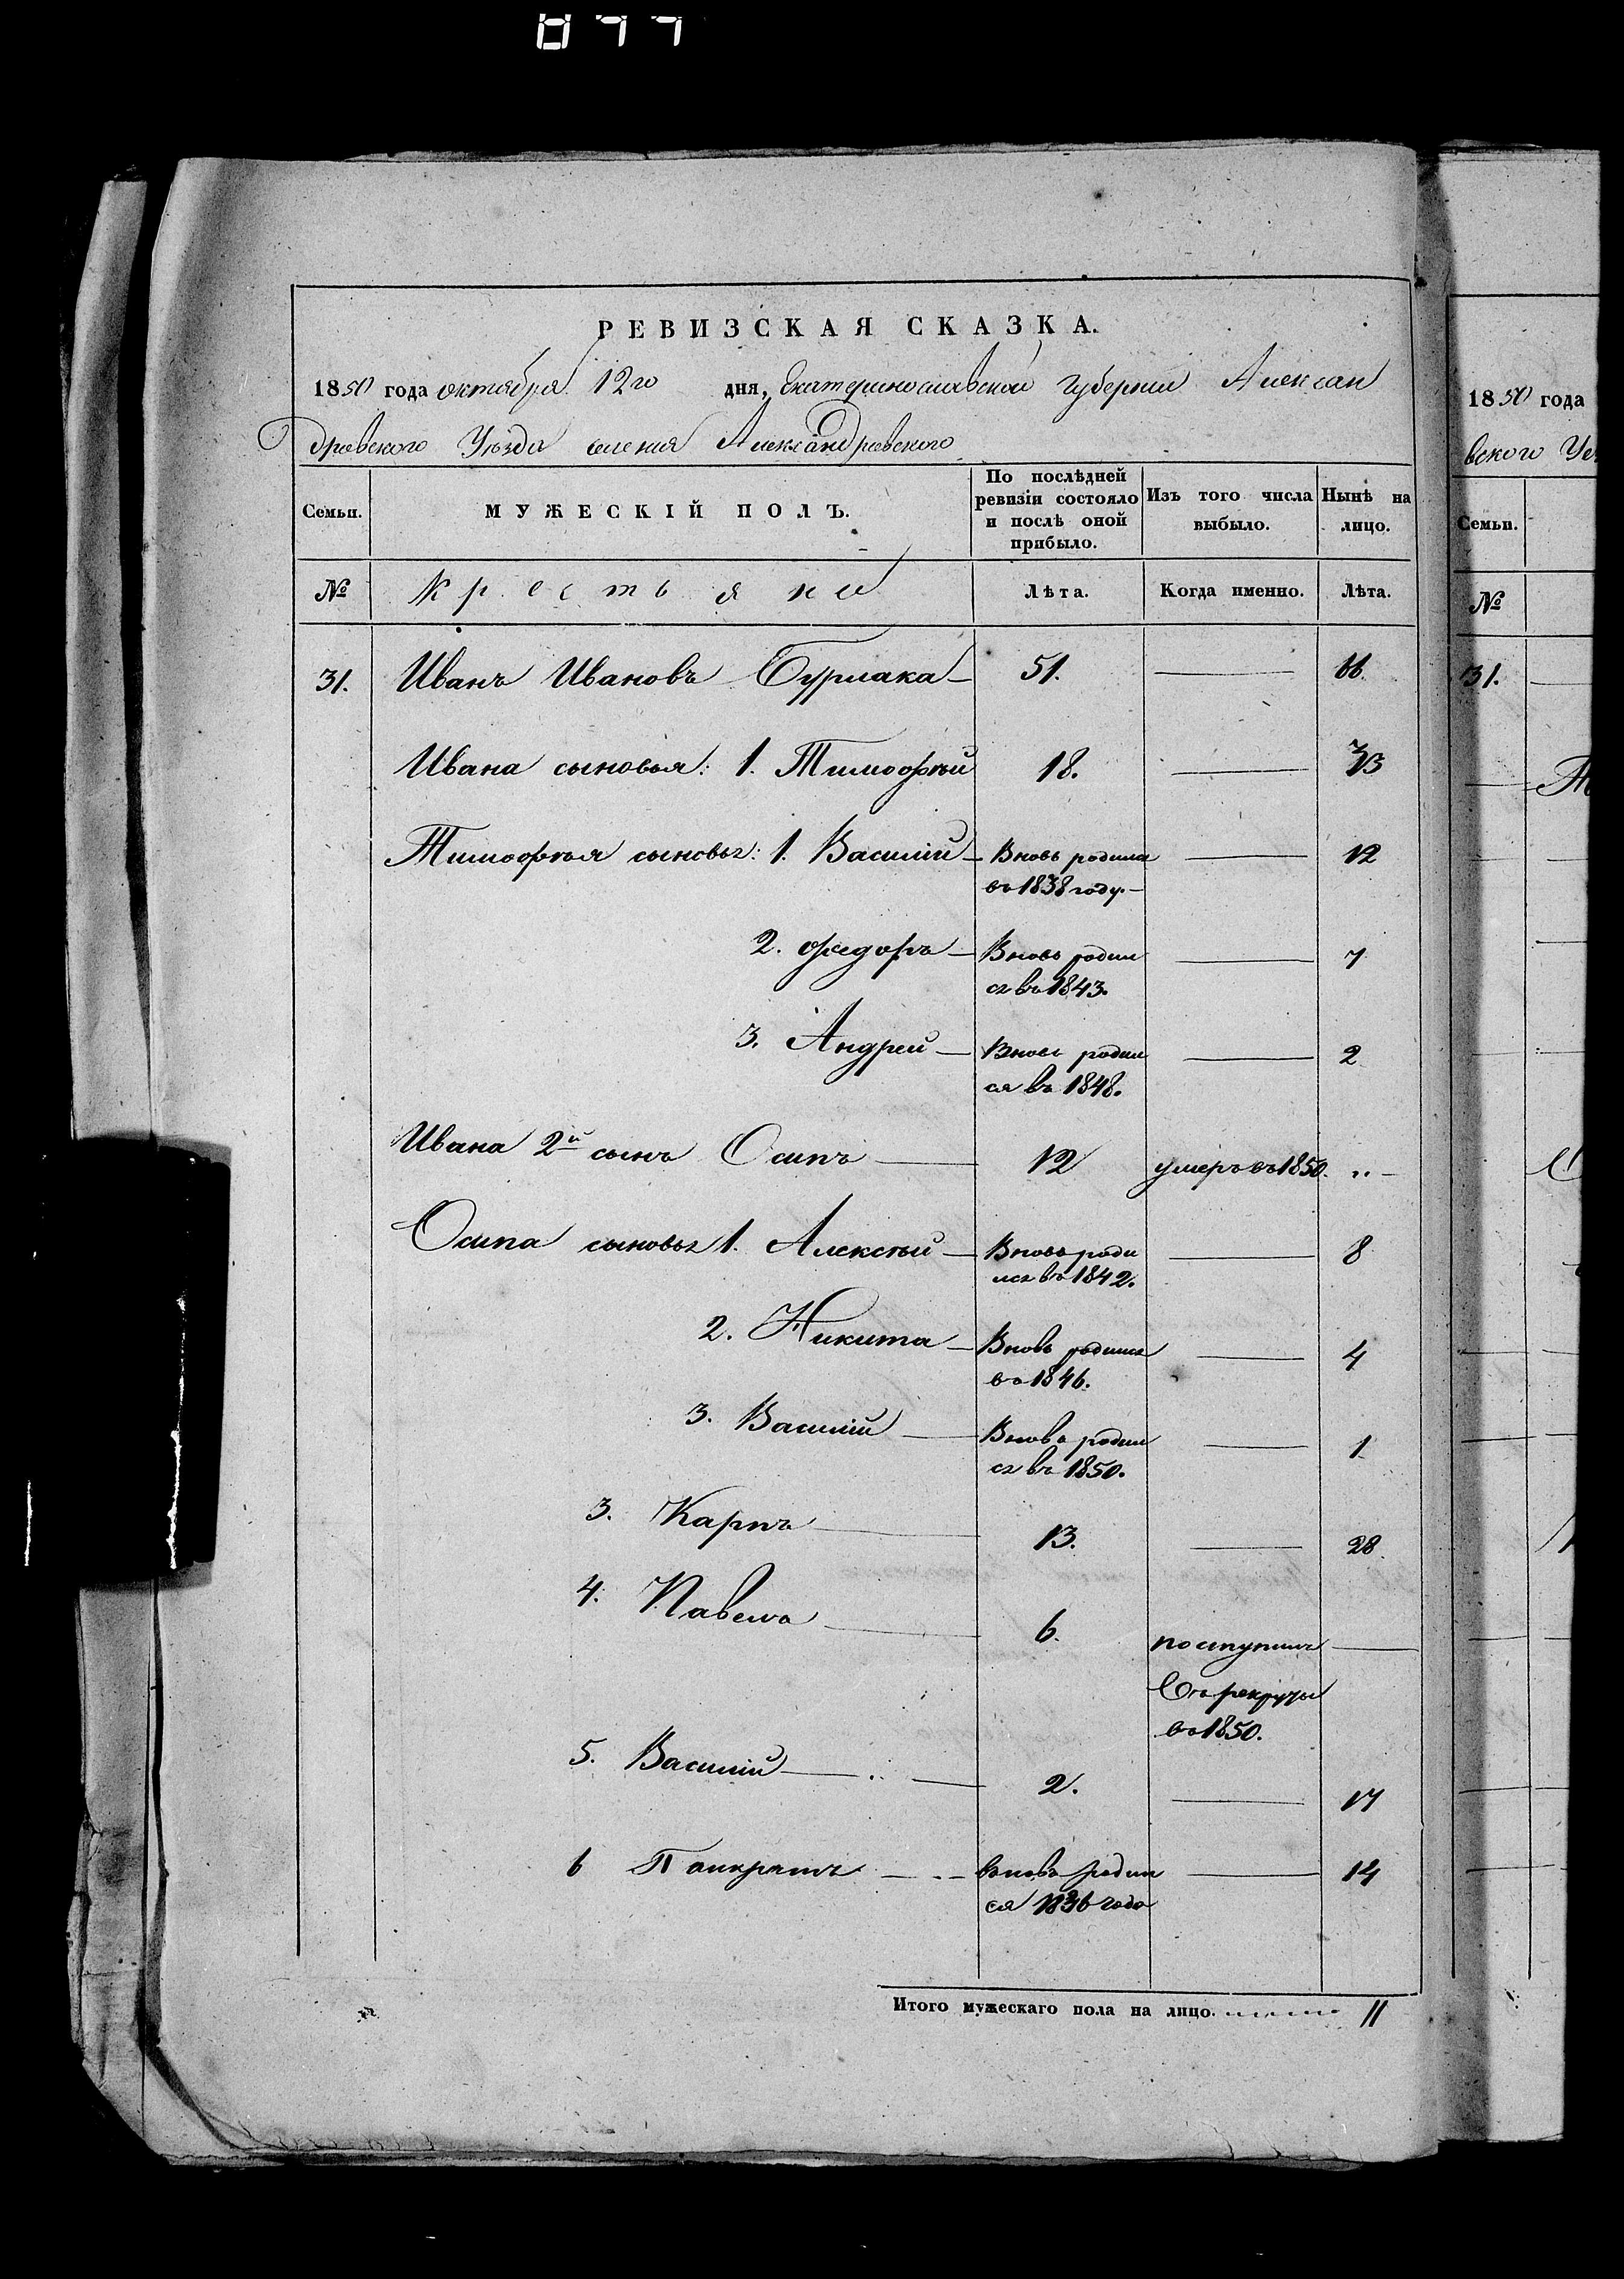 РЕВИЗСКАЯ СКАЗКА.
1850 года октября 12го дня, Екатеринославской Губернии Алексан
дровского Уезда селения Александровского
Семьи. МУЖЕСКІЙ ПОЛЪ. По послѣдней ревизіи состояло и послѣ оной прибыло. Изъ того числа выбыло. Нынѣ на лицо.
№ Крестьяне Лѣта. Когда именно. Лѣта.
31. Иванъ Ивановъ Бурлака 51. 66
Ивана сыновья: 1. Тимофѣй 18. 33
Тимофѣя сыновья: 1. Василій Вновь родился 12
въ 1838 году.
2. Федоръ Вновь родил 7
ся въ 1843.
3. Андрей Вновь родил 2
ся въ 1848.
Ивана 2й сынъ Осипъ 12 умеръ въ 1850. "
Осипа сыновья 1. Алексѣй Вновь роди 8
лся въ 1842.
2. Никита Вновь родился 4
въ 1846.
3. Василій Вновь родил 1
ся въ 1850.
3. Карпъ 13. 28.
4. Павелъ 6. поступилъ
въ рекруты
въ 1850.
5. Василій 2. 17
6 Панкратъ вновь родил 14
ся 1836 года
Итого мужескаго пола на лицо. 11
1850 года
вского Уе
Семьи.
№
31.